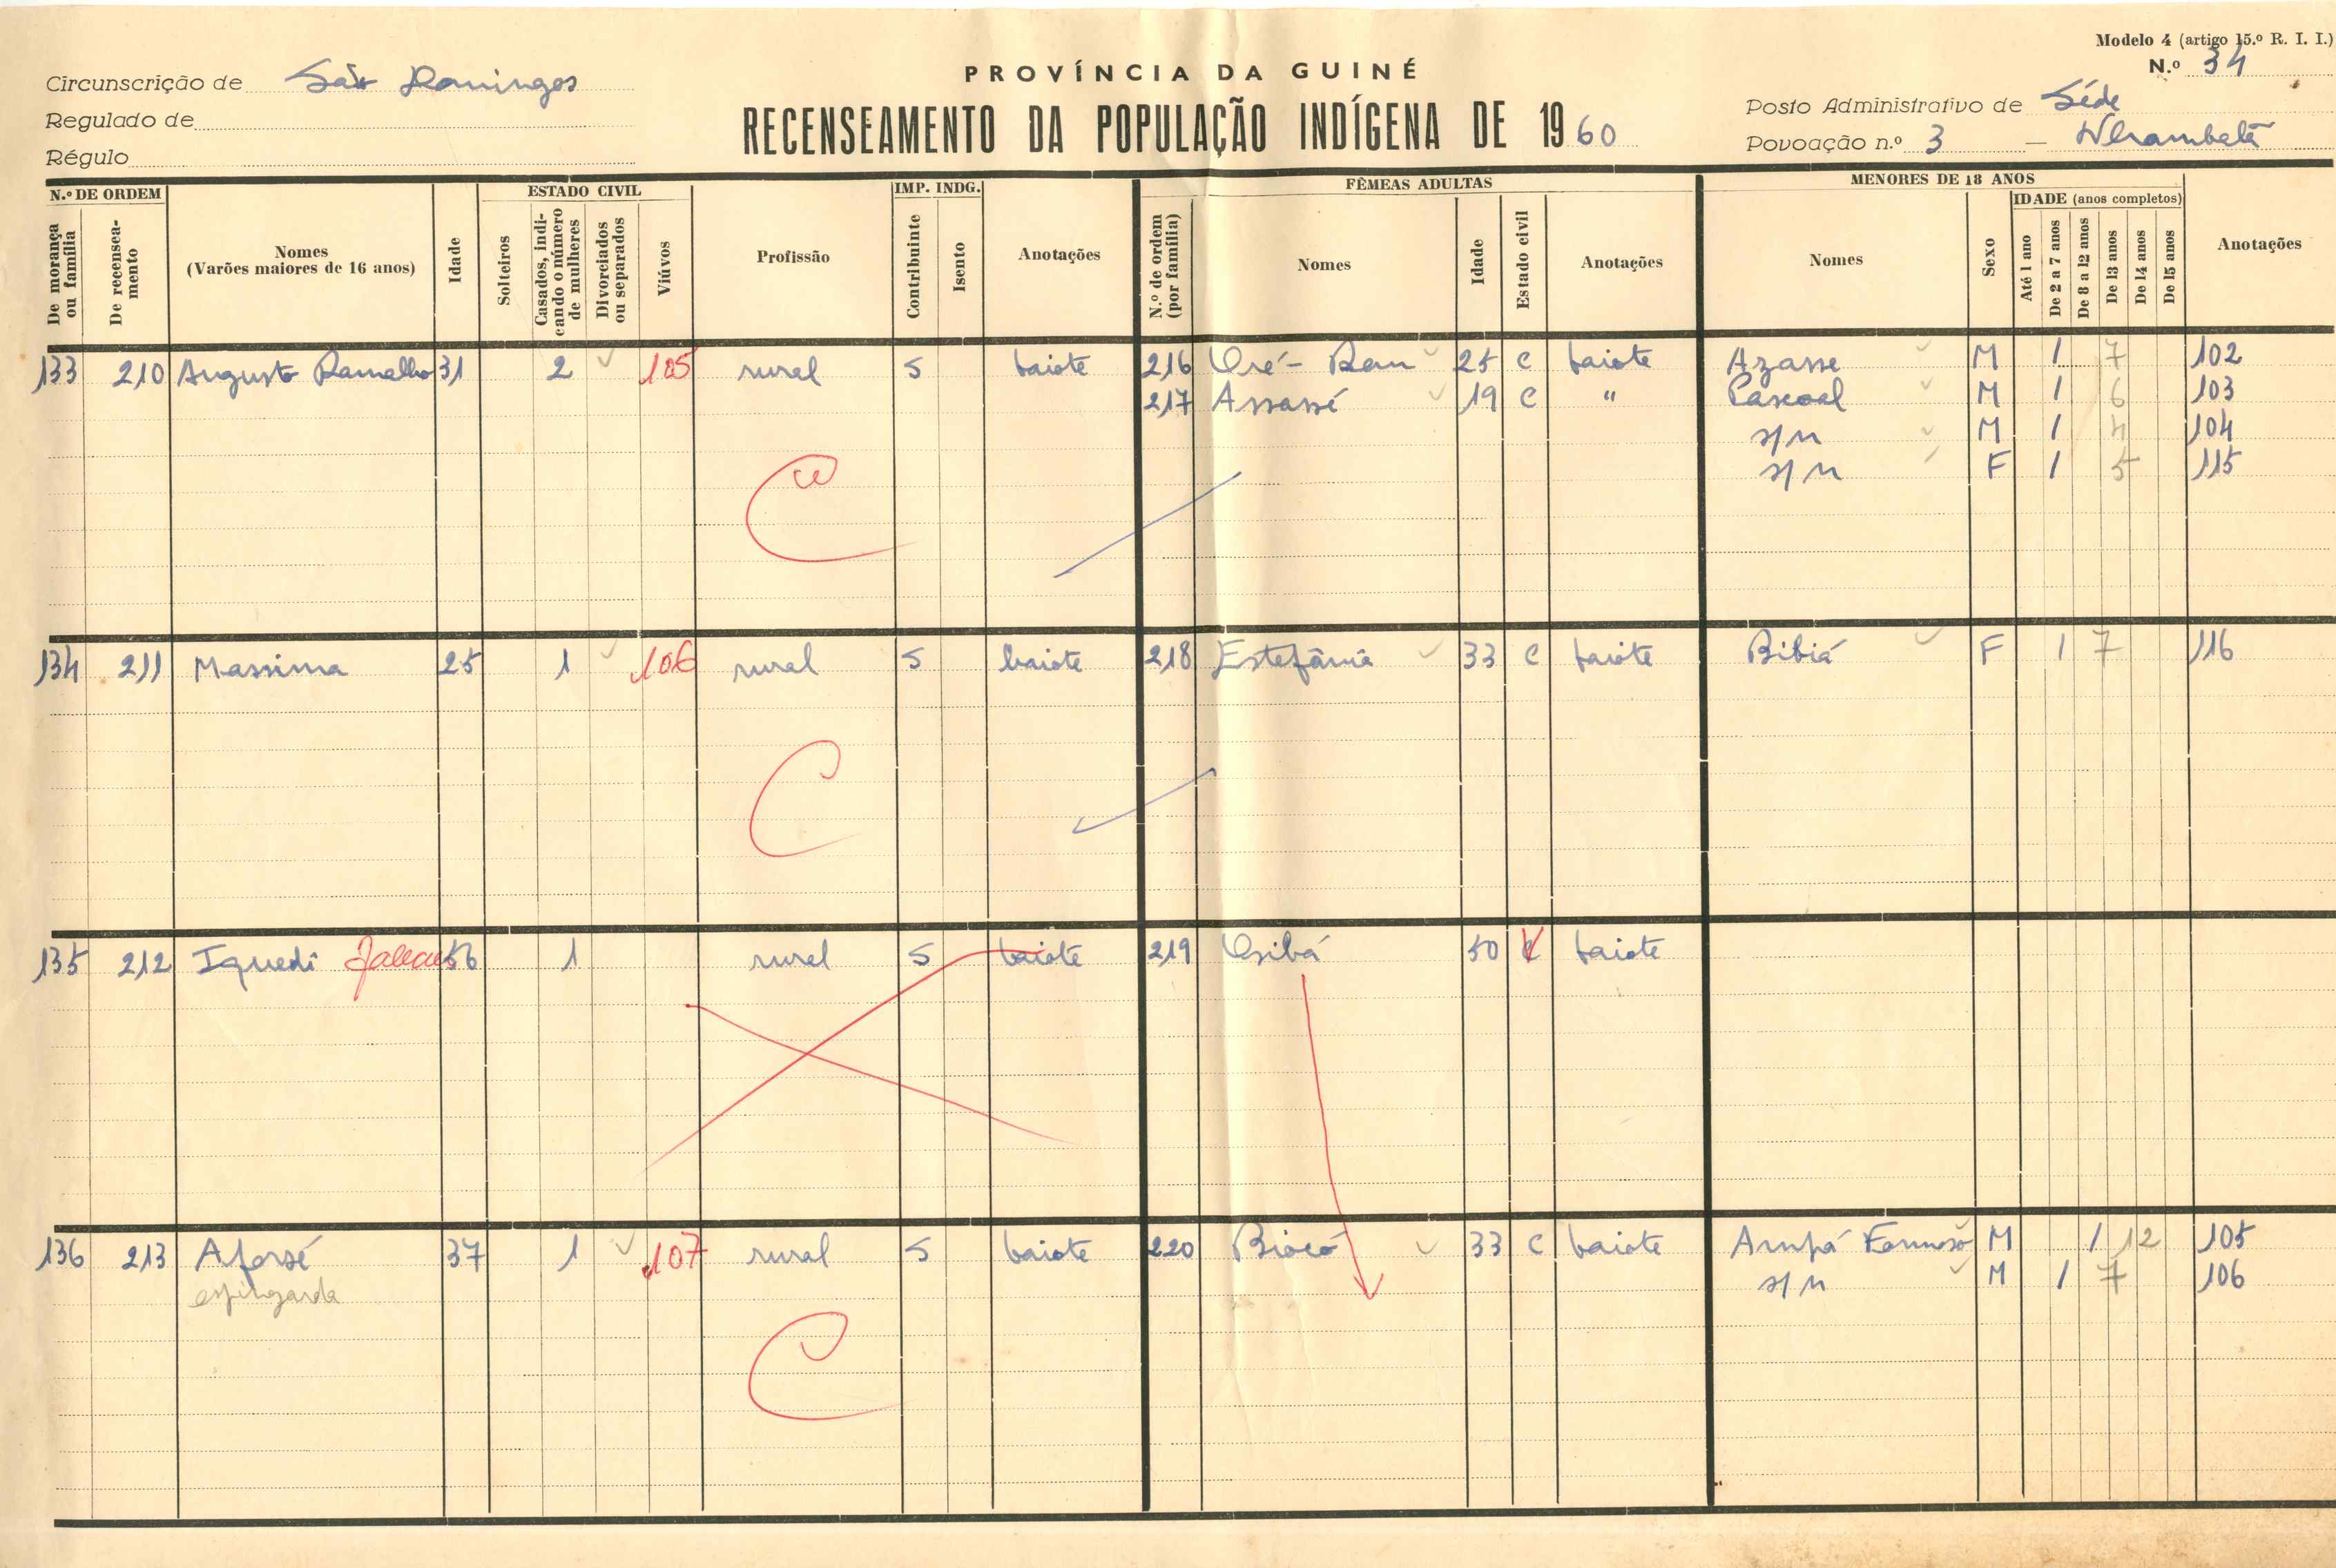 Modelo 4 (artigo 15.º R. I. I.)
N.º 34
PROVÍNCIA DA GUINÉ
RECENSEAMENTO DA POPULAÇÃO INDÍGENA DE 1960
Circunscrição de São Domingos
Regulado de
Régulo
Posto Administrativo de Séde
Povoação n.º 3 —
N.º DE ORDEM
De morança ou família
De recensea-mento
Nomes
(Varões maiores de 16 anos)
Idade
ESTADO CIVIL
Solteiros
Casados, indi-cando o número de mulheres
Divorciados ou separados
Viúvos
Profissão
IMP. INDG.
Contribuinte
Isento
Anotações
FÊMEAS ADULTAS
N.º de ordem (por família)
Nomes
Idade
Estado civil
Anotações
MENORES DE 18 ANOS
Nomes
Sexo
IDADE (anos completos)
Até 1 ano
De 2 a 7 anos
De 8 a 12 anos
De 13 anos
De 14 anos
De 15 anos
Anotações
133 210 Augusto Ramalho 31 2 105 rural S baiote 216 25 C baiote Azasse M 1 7 102
217 Assassé 19 C " Pascoal M 1 6 103
s/n M 1 4 104
s/n F 1 5 115
C
134 211 Massima 25 1 106 rural S baiote 218 Estefânia 33 C baiote Bibiá F 1 7 116
C
135 212 Iquedi 56 1 rural S baiote 219 50 baiote
136 213 Aforsé 37 1 107 rural S baiote 220 33 C baiote M 1 12 105
espingarda s/n M 1 7 106
C